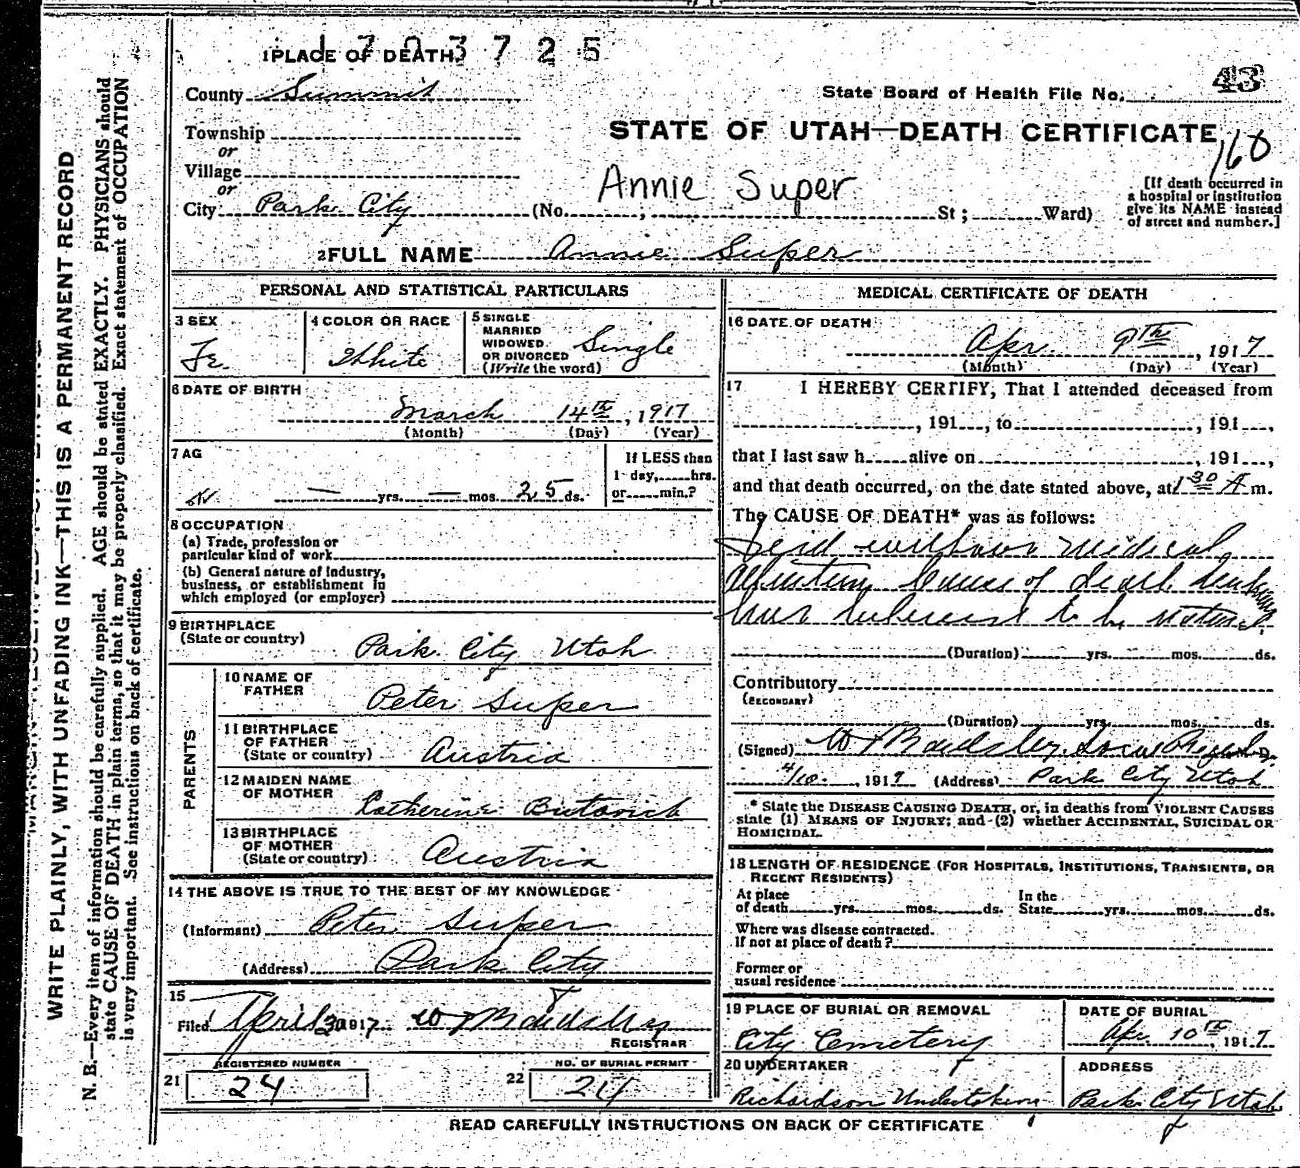 1 7 0 3 7 2 5
1 PLACE OF DEATH
County Summit
State Board of Health File No. 43
Township
STATE OF UTAH—DEATH CERTIFICATE
160
or
Village
or
City Park City
Annie Super
(No. ; St ; Ward)
[If death occurred in
a hospital or institution
give its NAME instead
of street and number.]
2 FULL NAME Annie Super
PERSONAL AND STATISTICAL PARTICULARS
3 SEX
Fe.
4 COLOR OR RACE
White
5 SINGLE
MARRIED
WIDOWED
OR DIVORCED
(Write the word)
Single
6 DATE OF BIRTH
March 14th, 1917
(Month) (Day) (Year)
7 AG
— yrs. — mos. 25 ds.
If LESS than
1 day, hrs.
or min.?
8 OCCUPATION
(a) Trade, profession or
particular kind of work
(b) General nature of Industry,
business, or establishment in
which employed (or employer)
9 BIRTHPLACE
(State or country)
Park City Utah
PARENTS
10 NAME OF
FATHER
Peter Super
11 BIRTHPLACE
OF FATHER
(State or country)
Austria
12 MAIDEN NAME
OF MOTHER
Catherine
13 BIRTHPLACE
OF MOTHER
(State or country)
Austria
14 THE ABOVE IS TRUE TO THE BEST OF MY KNOWLEDGE
(Informant) Peter Super
(Address) Park City
15
Filed April 30 1917
REGISTRAR
REGISTERED NUMBER
21 24
NO. OF BURIAL PERMIT
22
MEDICAL CERTIFICATE OF DEATH
16 DATE OF DEATH
Apr. 9th, 1917
(Month) (Day) (Year)
17 I HEREBY CERTIFY, That I attended deceased from
, 191 , to , 191 ,
that I last saw h alive on , 191 ,
and that death occurred, on the date stated above, at 1 30 A m.
The CAUSE OF DEATH* was as follows:
Died without Medical
Attention Cause of death
believed to be natural
(Duration) yrs. mos. ds.
Contributory
(SECONDARY)
(Duration) yrs. mos. ds.
(Signed) M.D.
4/10, 1917 (Address) Park City Utah
* State the DISEASE CAUSING DEATH, or, in deaths from VIOLENT CAUSES
state (1) MEANS OF INJURY; and (2) whether ACCIDENTAL, SUICIDAL OR
HOMICIDAL.
18 LENGTH OF RESIDENCE (FOR HOSPITALS, INSTITUTIONS, TRANSIENTS, OR
RECENT RESIDENTS)
At place
of death yrs. mos. ds.
In the
State yrs. mos. ds.
Where was disease contracted.
If not at place of death?
Former or
usual residence
19 PLACE OF BURIAL OR REMOVAL
City Cemetery
DATE OF BURIAL
Apr 10th 1917
20 UNDERTAKER
Richardson Undertaking
ADDRESS
Park City Utah
READ CAREFULLY INSTRUCTIONS ON BACK OF CERTIFICATE
WRITE PLAINLY, WITH UNFADING INK—THIS IS A PERMANENT RECORD
N. B.—Every item of information should be carefully supplied. AGE should be stated EXACTLY. PHYSICIANS should
state CAUSE OF DEATH in plain terms, so that it may be properly classified. Exact statement of OCCUPATION
is very important. See instructions on back of certificate.